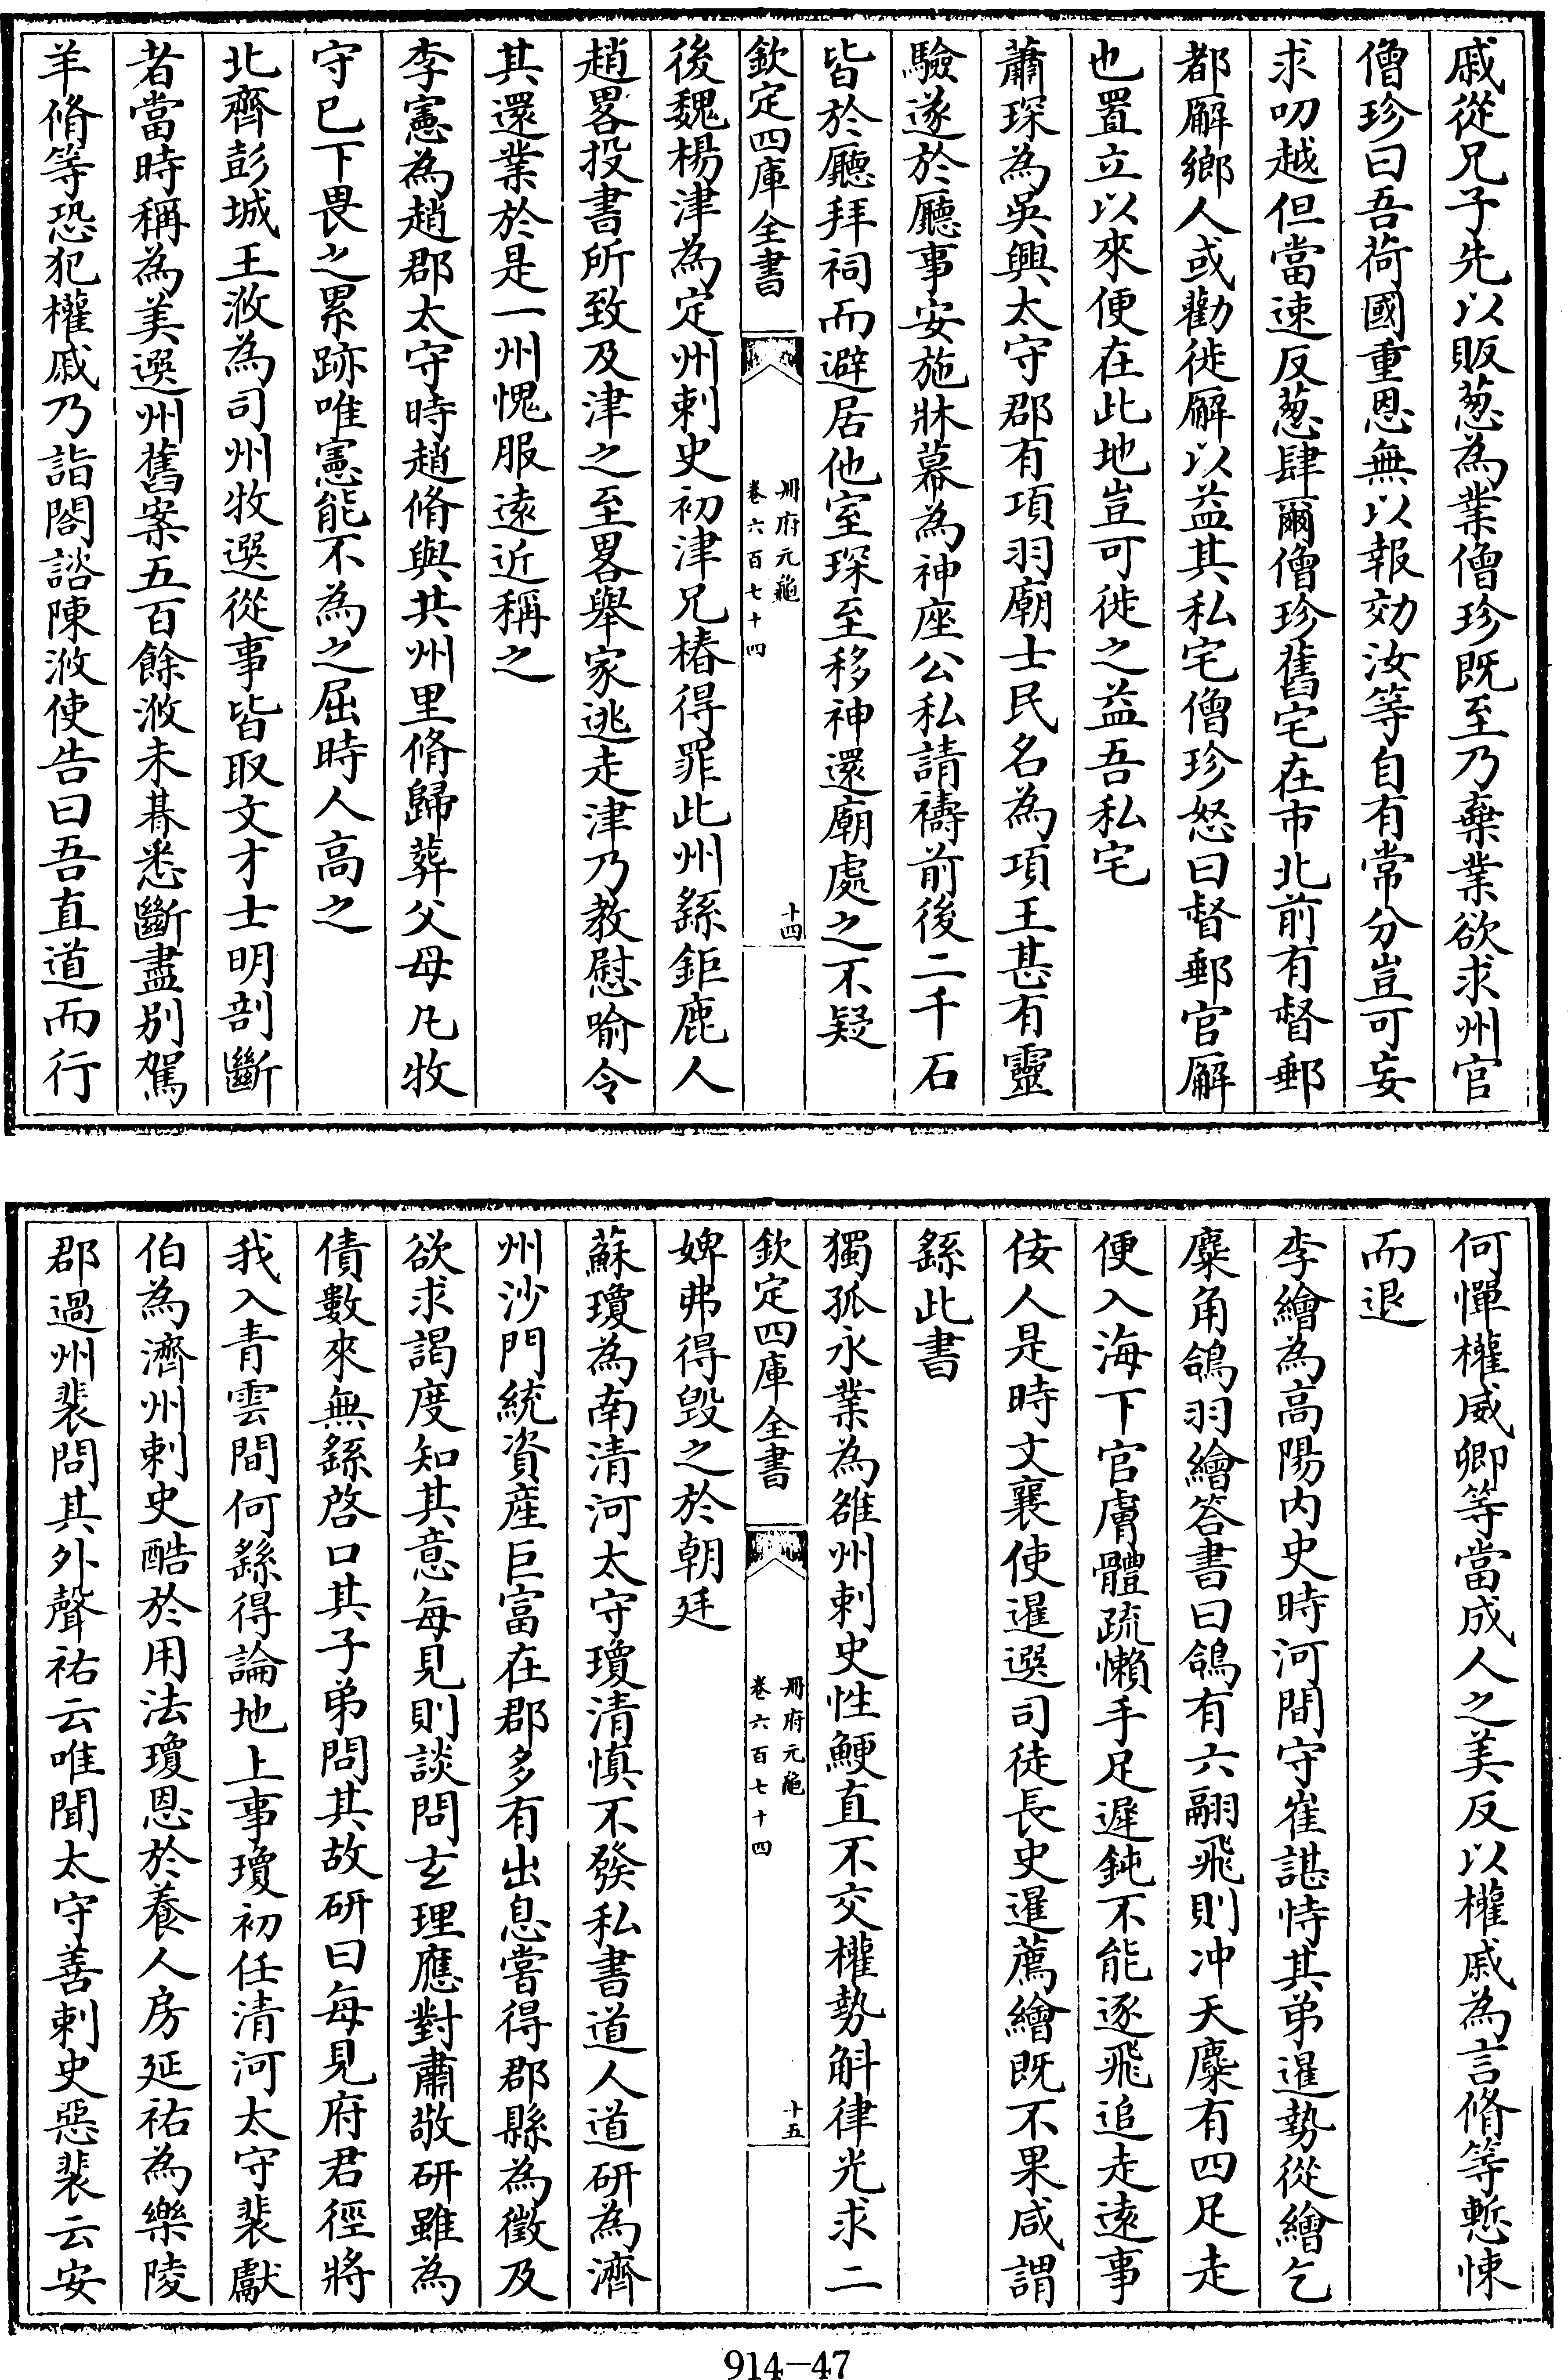 戚從兄子先以販葱為業僧珍既至乃棄業欲求州官
僧珍曰吾荷國重恩無以報効汝等自有常分豈可妄
求叨越但當速反葱肆爾僧珍舊宅在市北前有督郵
都廨鄉人或勸徙廨以益其私宅僧珍怒曰督郵官廨
也置立以來便在此地豈可徙之益吾私宅
蕭琛為吳興太守郡有項羽廟士民名為項王甚有靈
驗遂於廳事安施牀幕為神座公私請禱前後二千石
皆於廳拜祠而避居他室琛至移神還廟處之不疑
欽定四庫全書
册府元龜
卷六百七十四
十四
後魏楊津為定州刺史初津兄椿得罪此州繇鉅鹿人
趙畧投書所致及津之至畧舉家逃走津乃教慰喻令
其還業於是一州愧服遠近稱之
李憲為趙郡太守時趙脩與其州里脩歸葬父母凡牧
守已下畏之累跡唯憲能不為之屈時人高之
北齊彭城王浟為司州牧選從事皆取文才士明剖斷
者當時稱為美選州舊案五百餘浟未朞悉斷盡別駕
羊脩等恐犯權戚乃詣閤諮陳浟使告曰吾直道而行
何憚權威卿等當成人之美反以權戚為言脩等慙悚
而退
李繪為高陽内史時河間守崔諶恃其弟暹勢從繪乞
麋角鴿羽繪答書曰鴿有六翮飛則冲天麋有四足走
便入海下官膚體疏懶手足遲鈍不能逐飛追走遠事
佞人是時文襄使暹選司徒長史暹薦繪既不果咸謂
繇此書
獨孤永業為雒州刺史性鯁直不交權勢斛律光求二
欽定四庫全書
册府元龜
卷六百七十四
十五
婢弗得毁之於朝廷
蘇瓊為南清河太守瓊清慎不發私書道人道研為濟
州沙門統資産巨富在郡多有出息嘗得郡縣為徵及
欲求謁度知其意每見則談問玄理應對肅敬研雖為
債數來無繇啓口其子弟問其故研曰每見府君徑將
我入青雲間何繇得論地上事瓊初任清河太守裴獻
伯為濟州刺史酷於用法瓊恩於養人房延祐為樂陵
郡過州裴問其外聲祐云唯聞太守善刺史惡裴云安
914-47